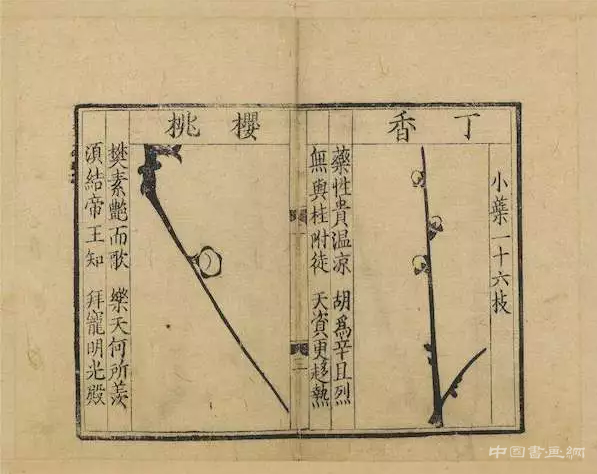 小蘂一十六枝
丁香
藥性貴温凉 胡爲辛且烈
無與桂附徒 天資更趍熱
二
櫻桃
樊素艷而歌 樂天何所羨
湏結帝王知 拜寵明光殿
中国書画網